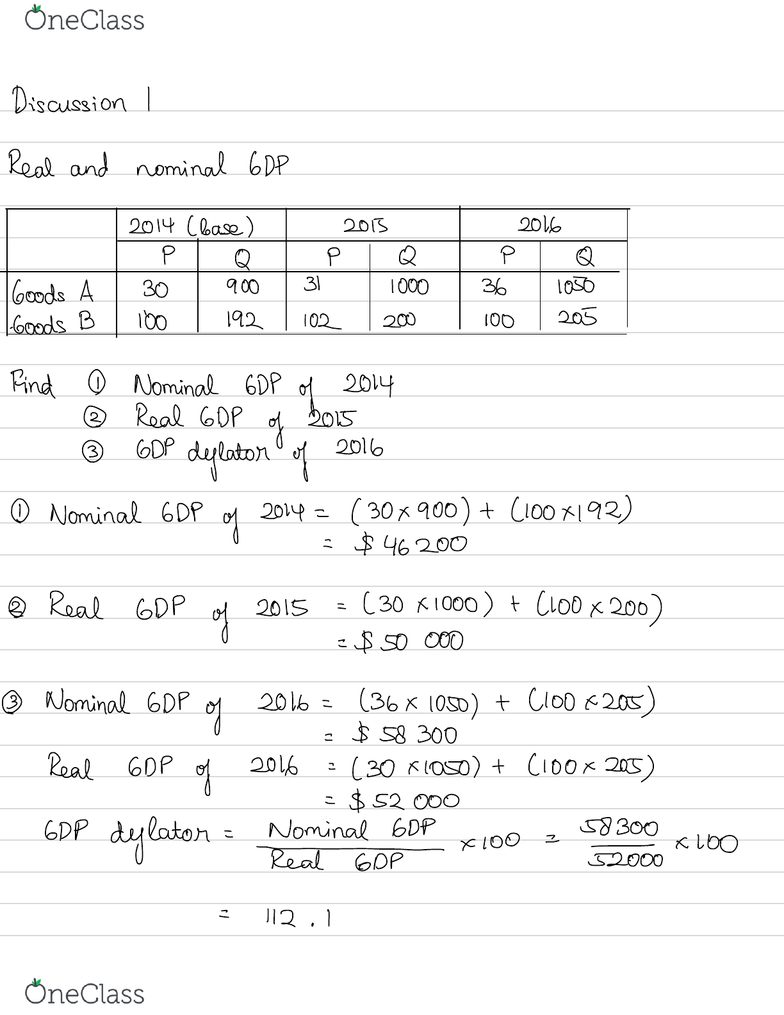 OneClass
Discussion 1
Real and nominal GDP
2014 (base) 2015 2016
P Q P Q P Q
Goods A 30 900 31 1000 36 1050
Goods B 100 192 102 200 100 205
Find ① Nominal GDP of 2014
② Real GDP of 2015
③ GDP dylator of 2016
① Nominal GDP of 2014 = (30 × 900) + (100 × 192)
= $ 46 200
② Real GDP of 2015 = (30 × 1000) + (100 × 200)
= $ 50 000
③ Nominal GDP of 2016 = (36 × 1050) + (100 × 205)
= $ 58 300
Real GDP of 2016 = (30 × 1050) + (100 × 205)
= $ 52 000
GDP dylator = Nominal GDP / Real GDP × 100 = 58300 / 52000 × 100
= 112.1
OneClass